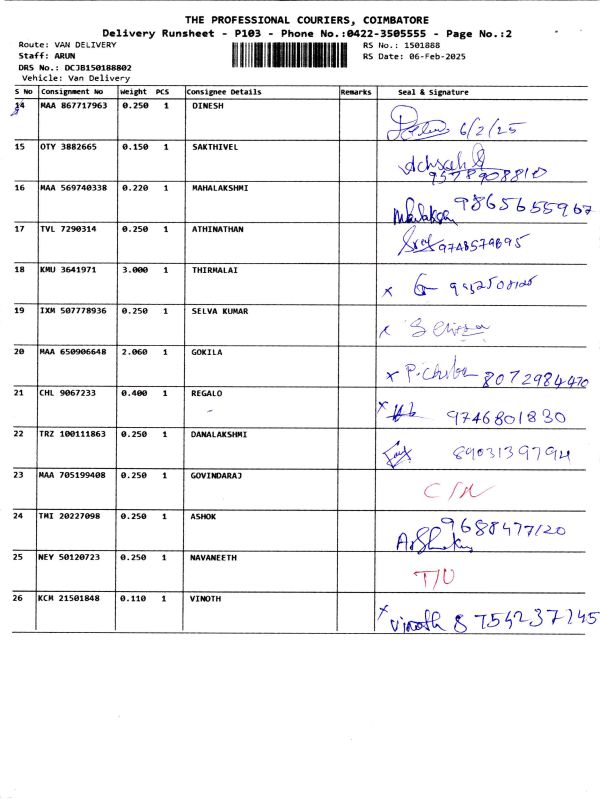 THE PROFESSIONAL COURIERS, COIMBATORE
Delivery Runsheet - P103 - Phone No.:0422-3505555 - Page No.:2
Route: VAN DELIVERY RS No.: 1501888
Staff: ARUN RS Date: 06-Feb-2025
DRS No.: DCJB150188802
Vehicle: Van Delivery
S No Consignment No Weight PCS Consignee Details Remarks Seal & Signature
14 MAA 867717963 0.250 1 DINESH
6/2/25
15 OTY 3882665 0.150 1 SAKTHIVEL
9578908810
16 MAA 569740338 0.220 1 MAHALAKSHMI
9865655967
17 TVL 7290314 0.250 1 ATHINATHAN
9748579695
18 KMU 3641971 3.000 1 THIRMALAI
x
19 IXM 507778936 0.250 1 SELVA KUMAR
x
20 MAA 650906648 2.060 1 GOKILA
x 8072984470
21 CHL 9067233 0.400 1 REGALO
x 9746801830
22 TRZ 100111863 0.250 1 DANALAKSHMI
8903139794
23 MAA 705199408 0.250 1 GOVINDARAJ
C/N
24 TMI 20227098 0.250 1 ASHOK
9688477120
25 NEY 50120723 0.250 1 NAVANEETH
T/U
26 KCM 21501848 0.110 1 VINOTH
x vinoth 8754237245